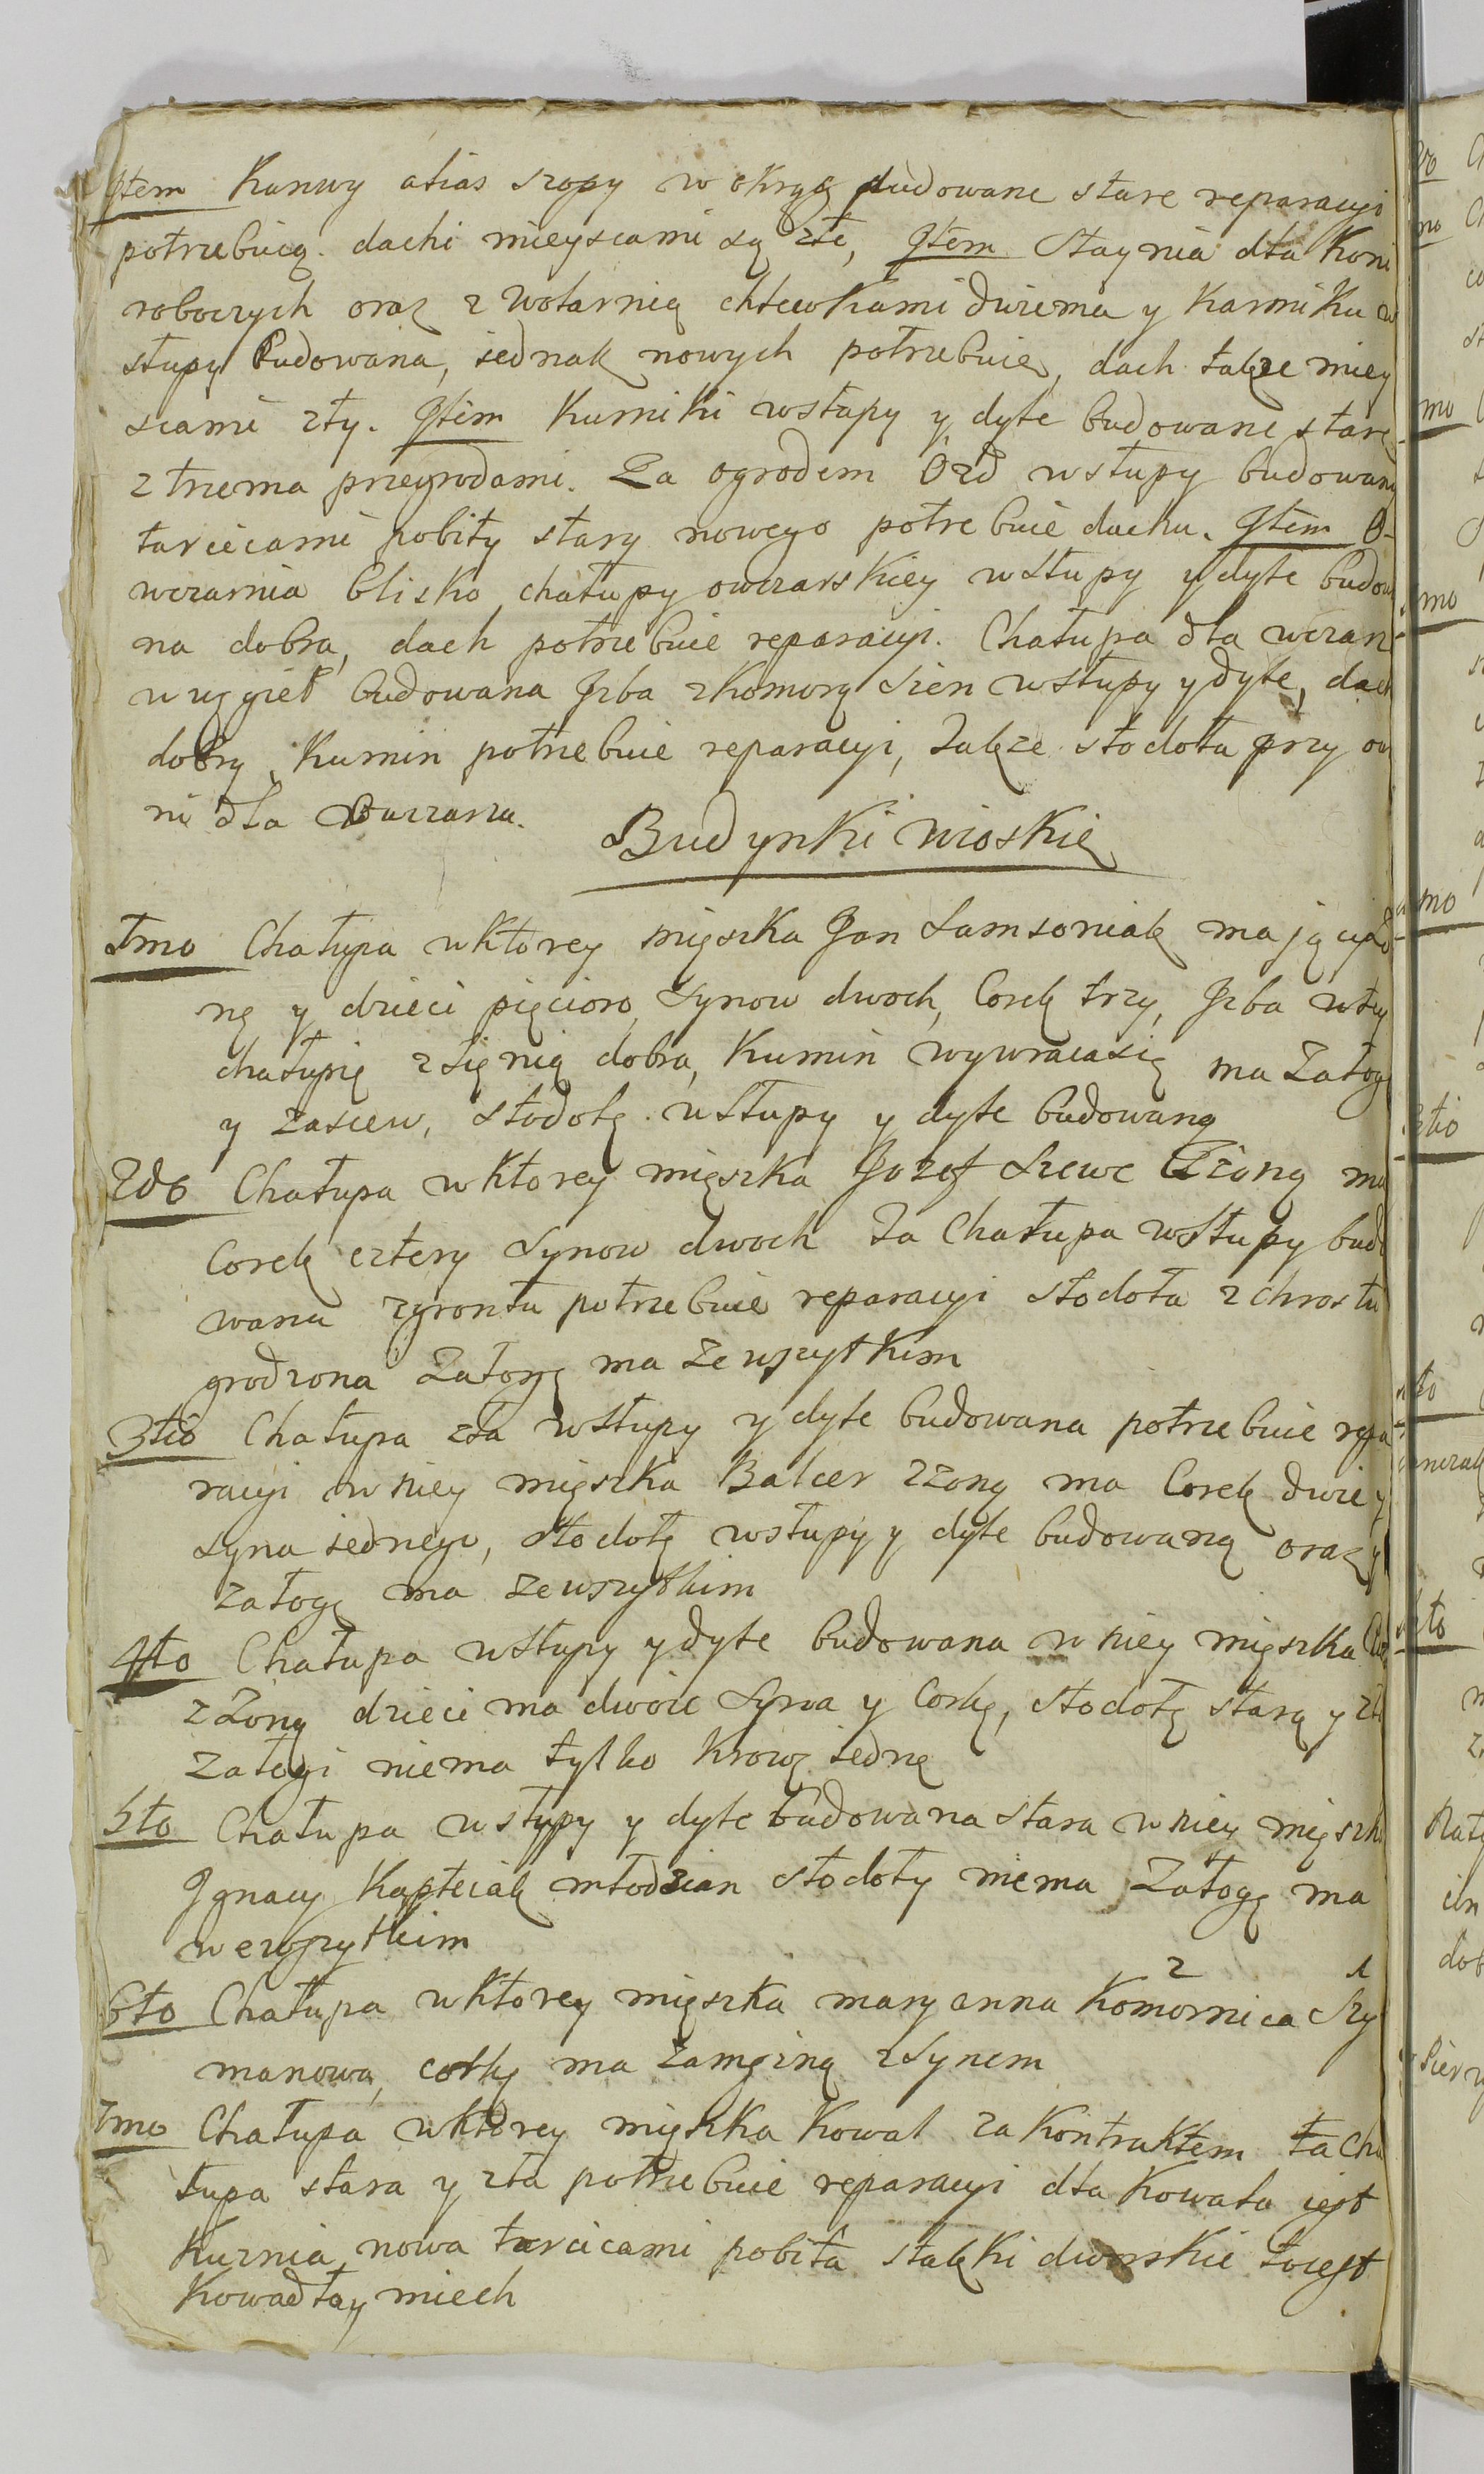 Item Kunwy alias szopy w okrąg budowane stare reparacyi
potrzebuią. dachi mieyscami są złe, Item Staynia dla Koni
roboczych oraz z Wolarnią chlewkami dwiema y Karmiku w
słupy budowana, iednak nowych potrzebuie, dach takze miey
scami zły. Item Kurniki w słupy y dyle budowane stare
z trzema przegrodami. Za ogrodem Ozd w słupy budowany
tarcicami pobity stary nowego potrebuie dachu. Item O-
wczarnia blisko chałupy owczarskiey w słupy y dyle budow
na dobra, dach potrzebuie reparacyi. Chałupa dla wczarz
w węgieł budowana Izba z komorą Sien w słupy y dyle, dach
dobry, Kumin potrzebuie reparacyi, Takze stodoła przy ow
ni dla Owczarza.
Budynki Wioskie
1mo Chałupa w ktorey mięszka Jan Samsoniak mają cy żo
nę y dzieci pięcioro, Synow dwoch, Corek trzy, Izba w tey
chałupię z się nią dobra, Kumin wywracasię ma Załogę
y zasiew, stodołę w słupy y dyle budowaną
2do Chałupa w ktorey mięszka Jozef Szewc Zżoną ma
Corek cztery Synow dwoch Ta Chałupa w słupy budo
wana zgrontu potrzebuie reparacyi stodoła z chrostu
grodzona Załogę ma ze wszytkim
3tio Chałupa zła w słupy y dyle budowana potrzebuie repa
racyi w niey mięszka Balcer zżoną ma Corek dwie y
syna iednego, stodołę w słupy y dyle budowaną oraz y
załogę ma ze wszytkim
4to Chałupa w słupy y dyle budowana w niey mięszka
z Żoną dzieci ma dwoie Syna y Corkę, stodołę starą y złą
załogi niema tylko krowę iednę
5to Chałupa w słupy y dyle budowana stara w niey mięszk
Ignacy Kapteiak młodzian stodoły niema Załogę ma
we wszytkim
6to Chałupa w ktorey mięszka maryanna Komornica Szy
2 1
manowa, corkę ma zamęzną z Synem
7mo Chałupa w ktorey mięszka Kowal za Kontraktem ta cha
łupa stara y zła potrzebuie reparacyi dla Kowala iest
Kuznia nowa tarcicami pobita statki dworskie to iest
Kowadła y miech